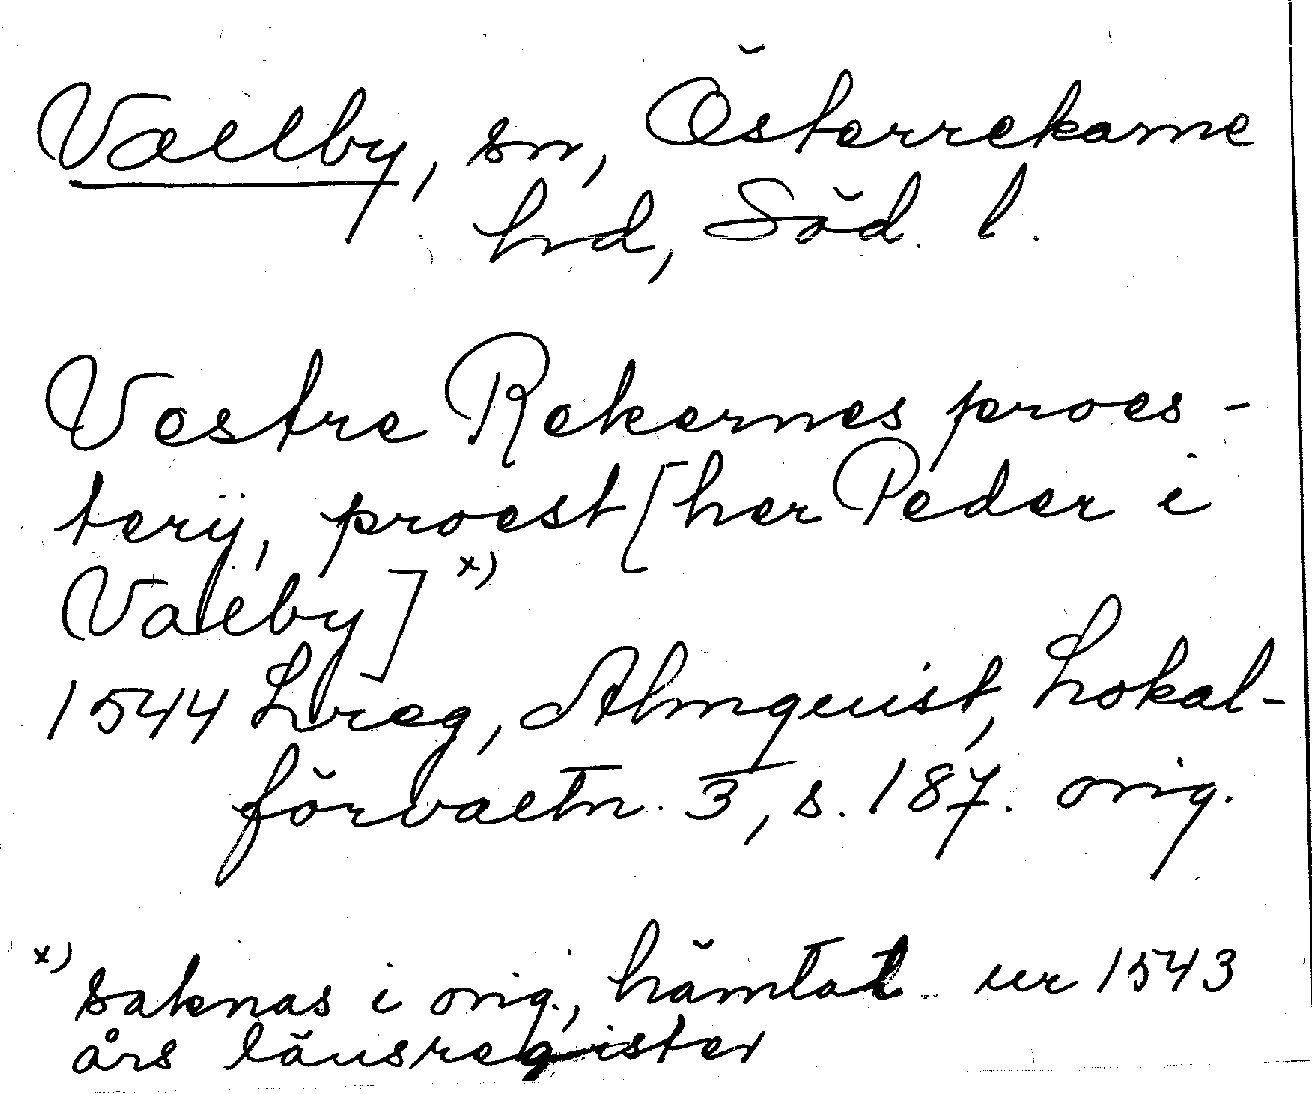 Vallby, sn, Österrekarne
hrd, Söd. l.
Vestre Rekernes proes-
terij, proest [her Peder i
Valby] x)
1544 Lreg, Almquist, Lokal-
förvaltn. 3, s. 187. orig.
x) saknas i orig., hämtat ur 1543
års länsregister